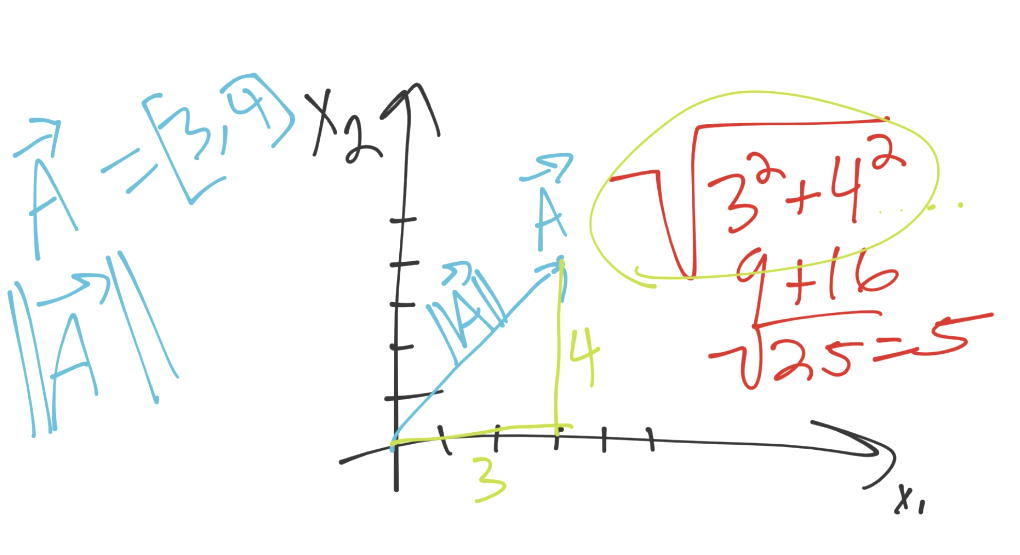 A⃗ = [3, 4]
‖A⃗‖
x₂
A⃗
‖A⃗‖
4
3
x₁
√3² + 4²
9 + 16
√25 = 5